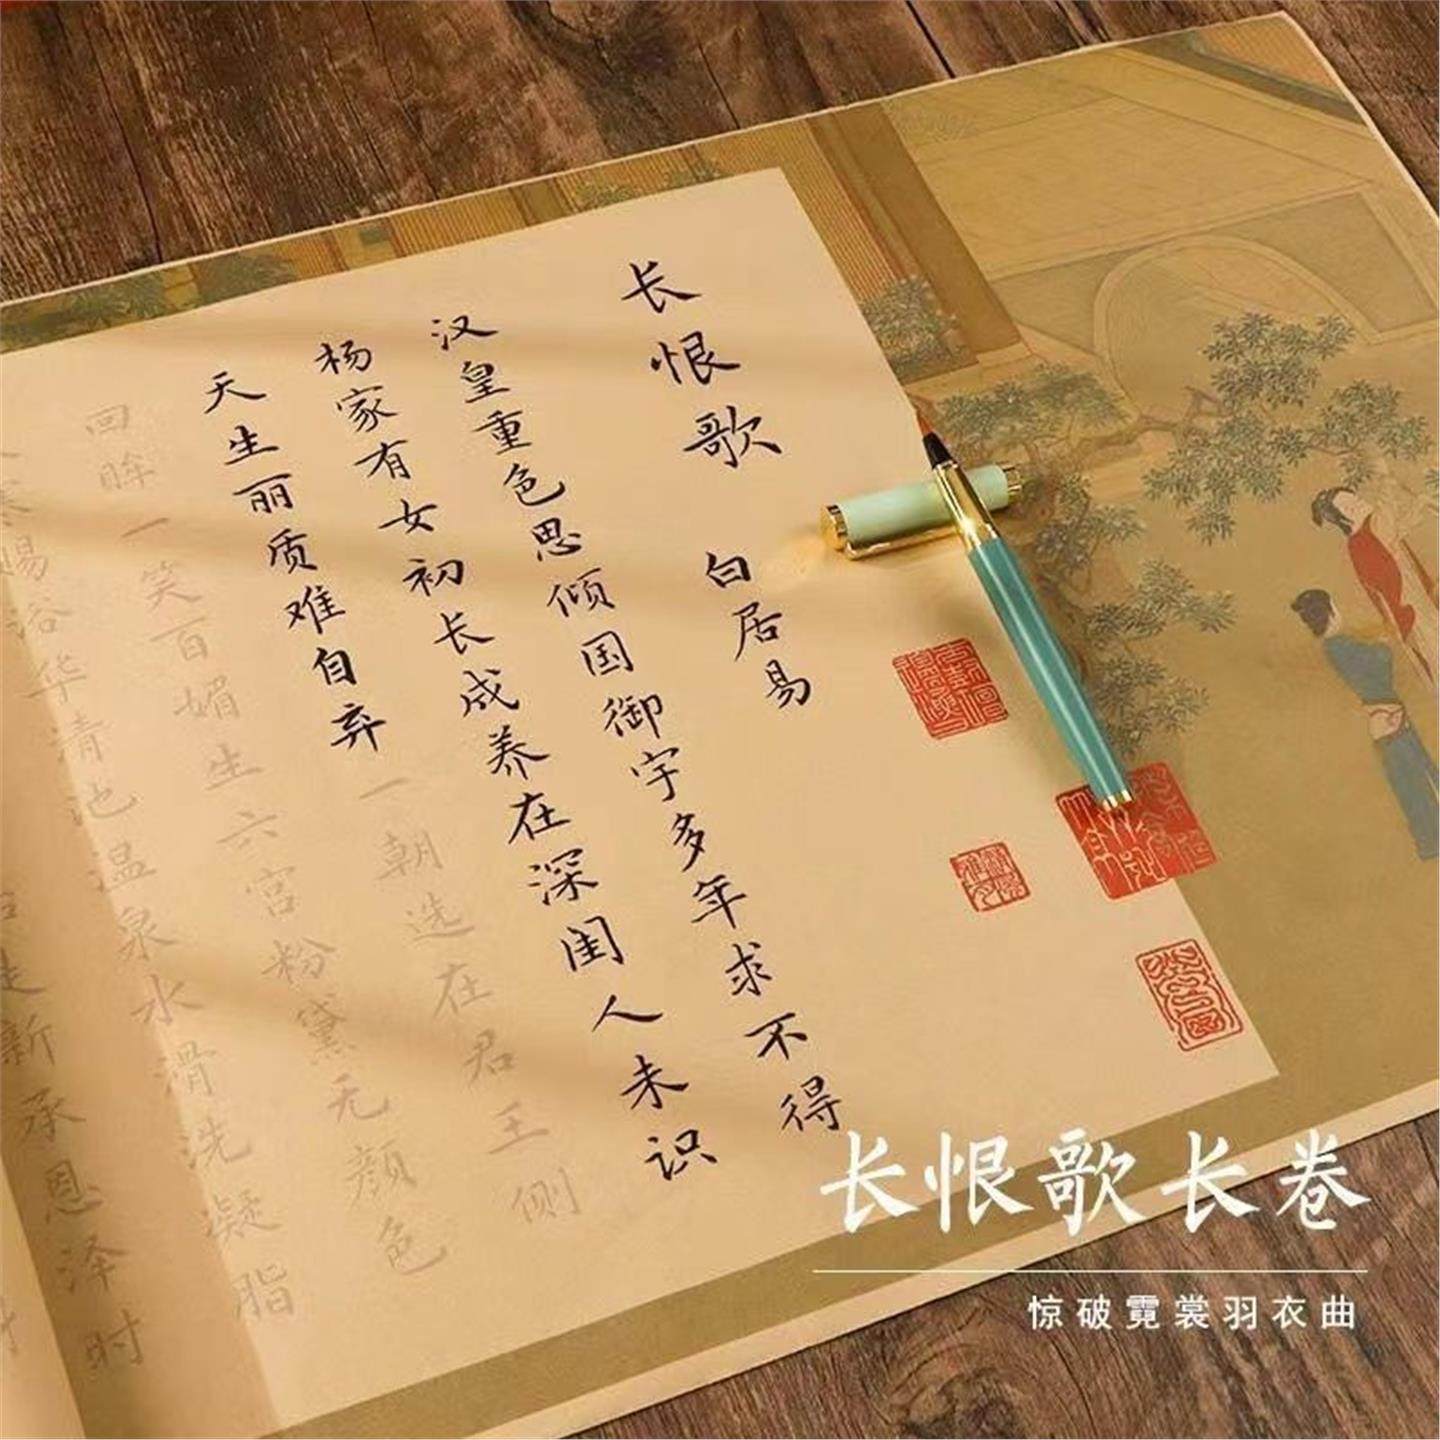 长恨歌 白居易
汉皇重色思倾国御宇多年求不得
杨家有女初长成养在深闺人未识
天生丽质难自弃一朝选在君王侧
回眸一笑百媚生六宫粉黛无颜色
赐浴华清池温泉水滑洗凝脂
新承恩泽时
长恨歌长卷
惊破霓裳羽衣曲